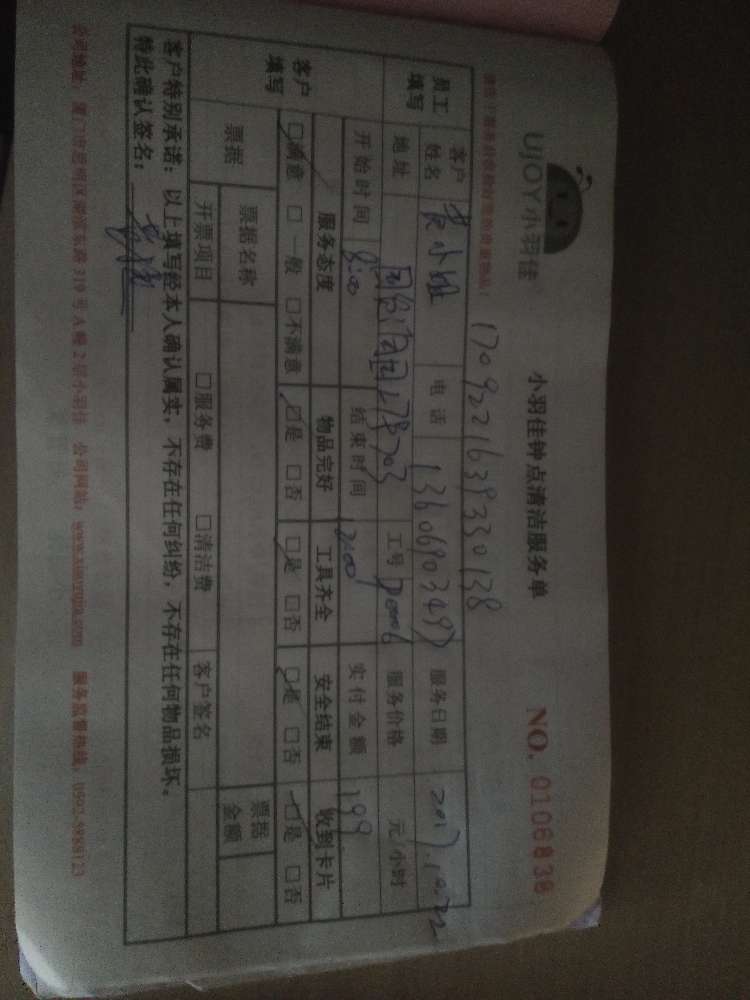 UJOY小羽佳
小羽佳钟点清洁服务单
NO. 0106838
1709221639330138
员工填写 客户姓名 小姐 电话 13606903497 服务日期 2017.10.22
地址 工号 服务价格 元/小时
开始时间 8:00 结束时间 12:00 实付金额 199
客户填写 服务态度 物品完好 工具齐全 安全结束 收到卡片
☑满意 □一般 □不满意 ☑是 □否 ☑是 □否 ☑是 □否 ☑是 □否
票据 票据名称 票据金额
开票项目 □服务费 □清洁费 客户签名
客户特别承诺：以上填写经本人确认属实，不存在任何纠纷，不存在任何物品损坏。
特此确认签名：
公司地址：厦门市思明区湖滨东路319号A幢2层小羽佳 公司网站：www.xiaoyujia.com 服务监督热线：0592-8888123